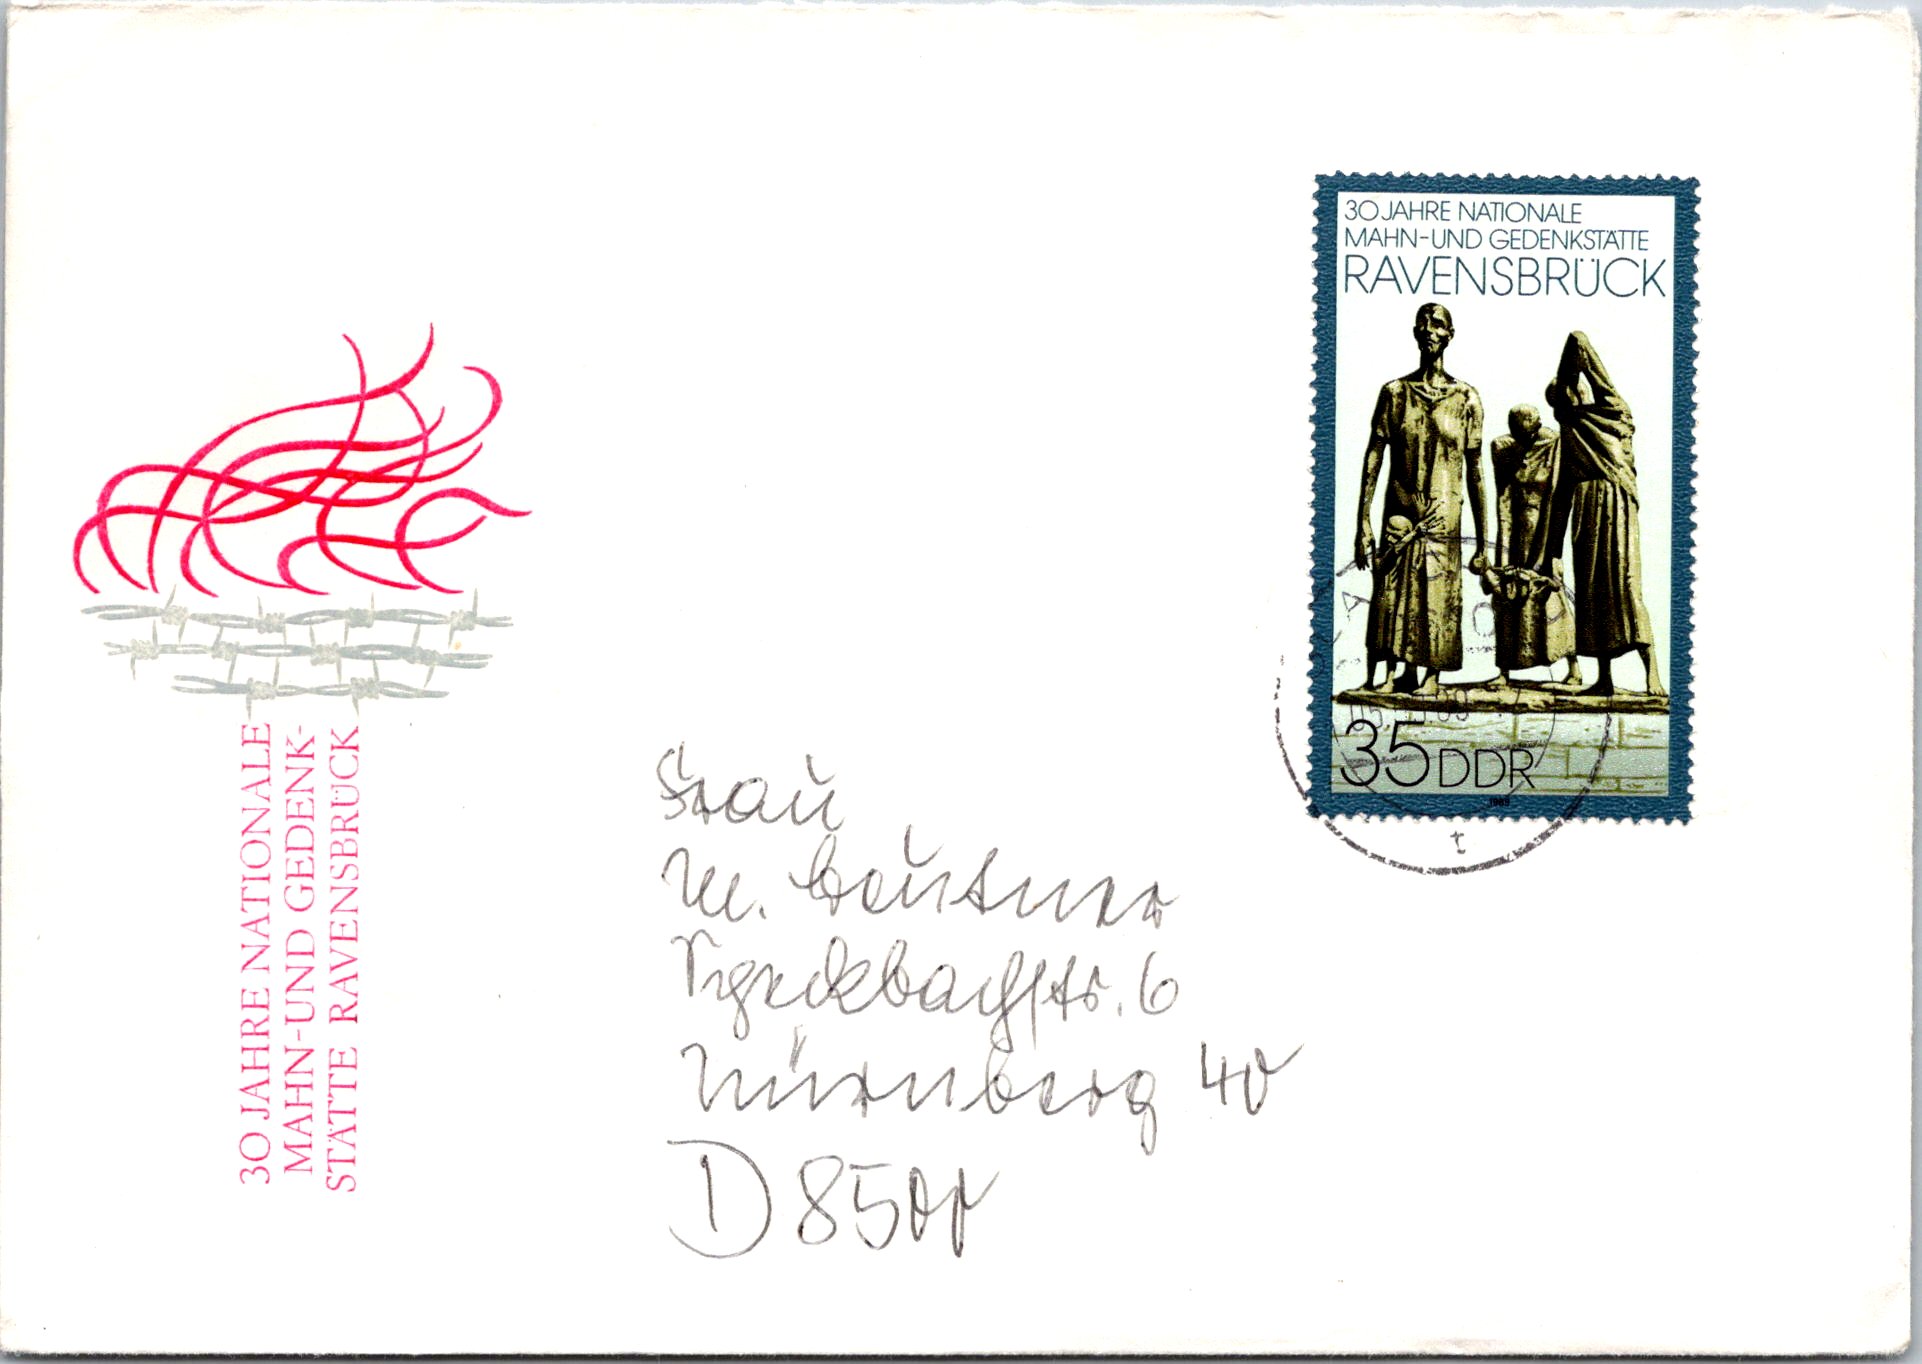 30 JAHRE NATIONALE
MAHN-UND GEDENKSTÄTTE
RAVENSBRÜCK
35 DDR
1989
t
30 JAHRE NATIONALE
MAHN-UND GEDENK-
STÄTTE RAVENSBRÜCK
Frau
M.
6
Nürnberg 40
D 8500